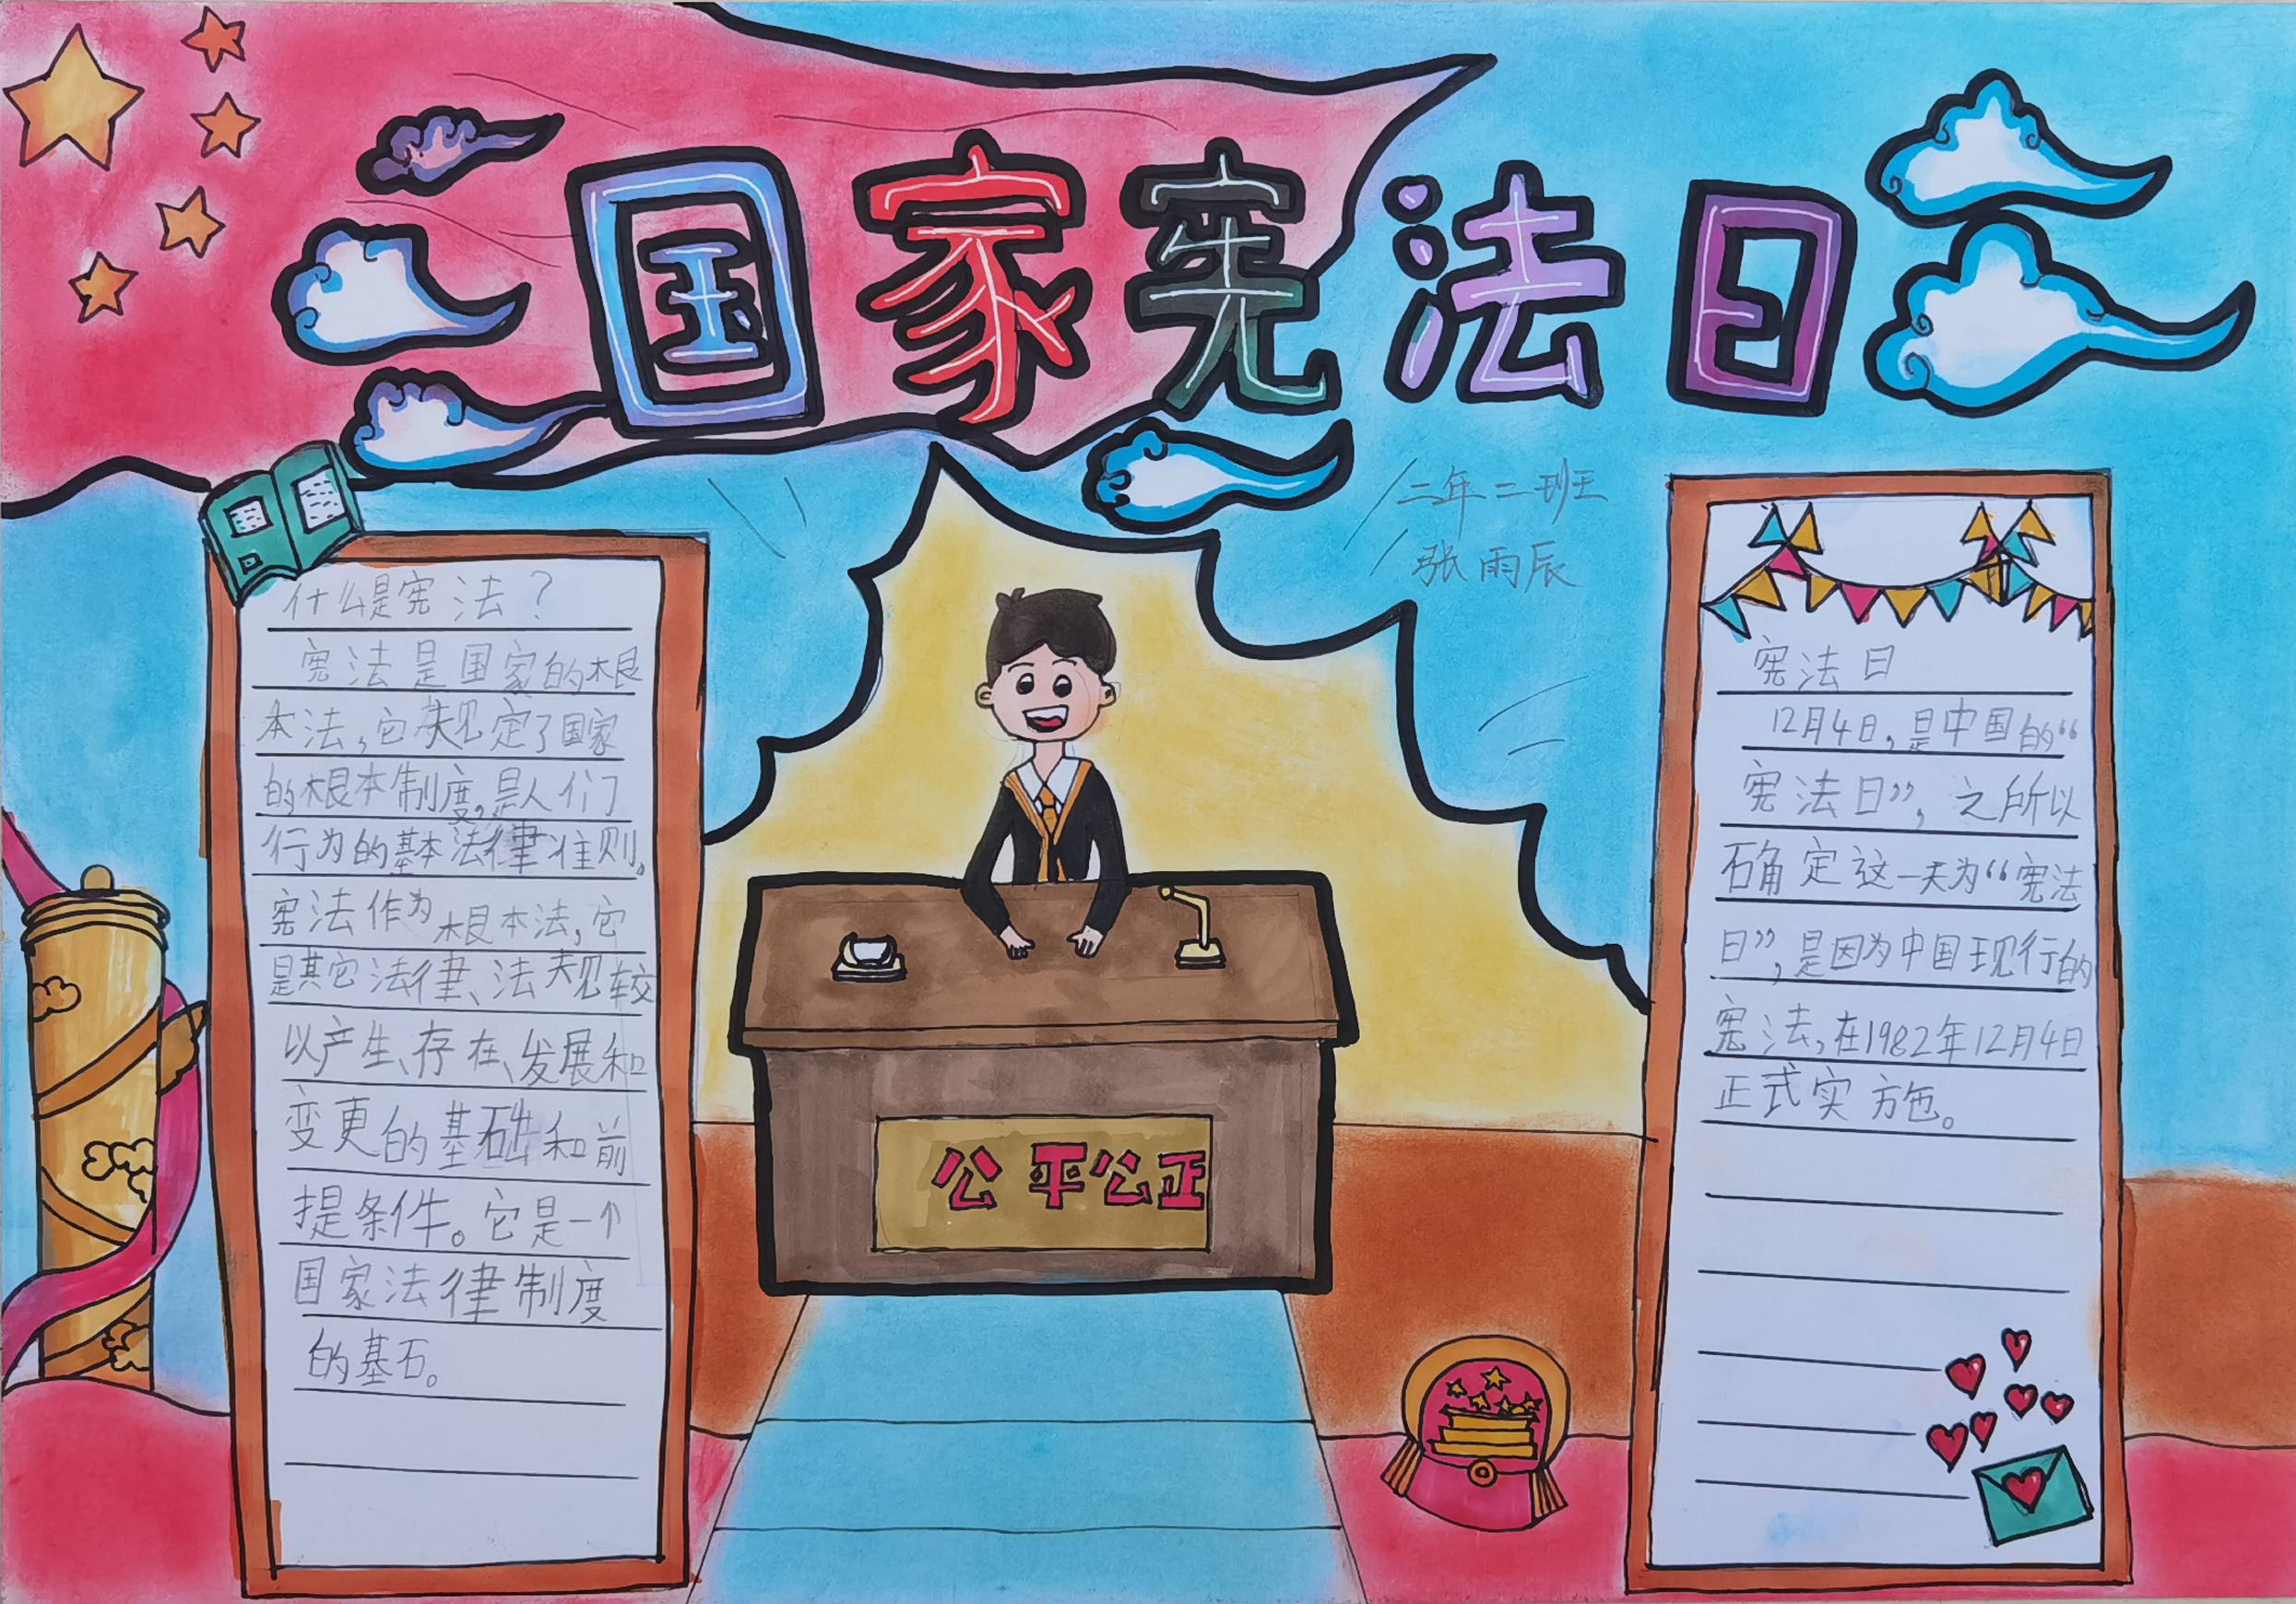 国家宪法日
二年二班
张雨辰
什么是宪法？
宪法是国家的根
本法，它规定了国家
的根本制度，是人们
行为的基本法律准则。
宪法作为根本法，它
是其它法律、法规较
以产生、存在、发展和
变更的基础和前
提条件。它是一个
国家法律制度
的基石。
公平公正
宪法日
12月4日，是中国的“
宪法日”，之所以
确定这一天为“宪法
日”，是因为中国现行的
宪法，在1982年12月4日
正式实施。